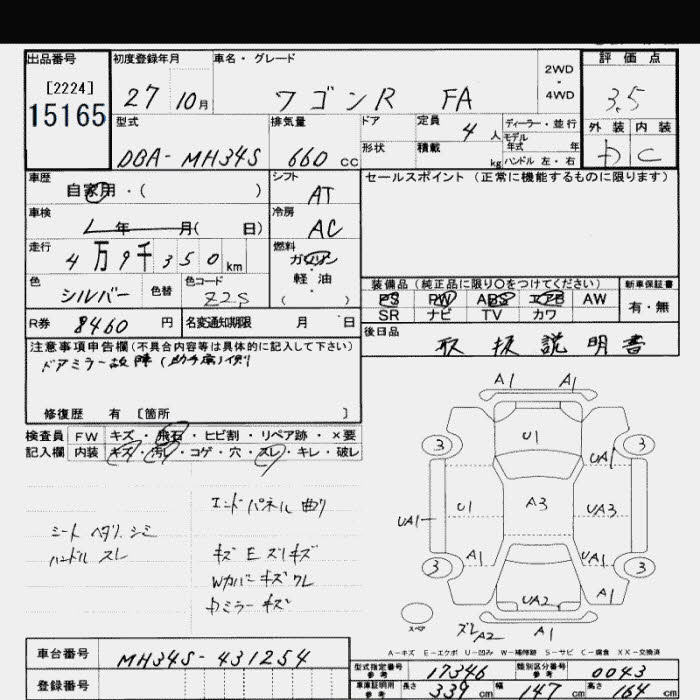 出品番号 初度登録年月 車名・グレード 評価点
[2224] 2WD
15165 27 10月 ワゴンR FA ・ 4WD 3.5
型式 排気量 ドア 定員 4人 ディーラー・並行 外装 内装
モデル年式 年
DBA-MH34S 660cc 形状 積載 kg ハンドル 左・右 D C
車歴 シフト セールスポイント (正常に機能するものに限ります)
自家用・( ) AT
車検 年 月( 日) 冷房 AC
走行 4万9千350km 燃料 ガソリン
色 シルバー 色替 色コード Z2S ・ 軽油 ( )
装備品 (純正品に限り○をつけてください) 新車保証書
PS PW ABS エアB AW 有・無
SR ナビ TV カワ
R券 8460円 名変通知期限 月 日 後日品 取扱説明書
注意事項申告欄(不具合内容等は具体的に記入して下さい)
ドアミラー故障(助手席)側
修復歴 有 [箇所 ]
検査員 FW キズ・飛石・ヒビ割・リペア跡・×要
記入欄 内装 キズ・汚レ・コゲ・穴・スレ・キレ・破レ
エンドパネル曲り
シート ヘタリ シミ
ハンドル スレ
キズ E ズリキズ
Wカバーキズワレ
Dミラーキズ
A1 A1
U1
3 3
UA1
U1 A3 UA3
UA1
A1 UA1
3 3
UA2 A1
スペア
ズレA2 A1
A-キズ E-エクボ U-凹み W-補修跡 S-サビ C-腐食 XX-交換済
車台番号 MH34S-431254
型式指定番号 参考 17346 類別区分番号 参考 0043
登録番号
車庫証明用 参考 長さ 339cm 幅 147cm 高さ 164cm